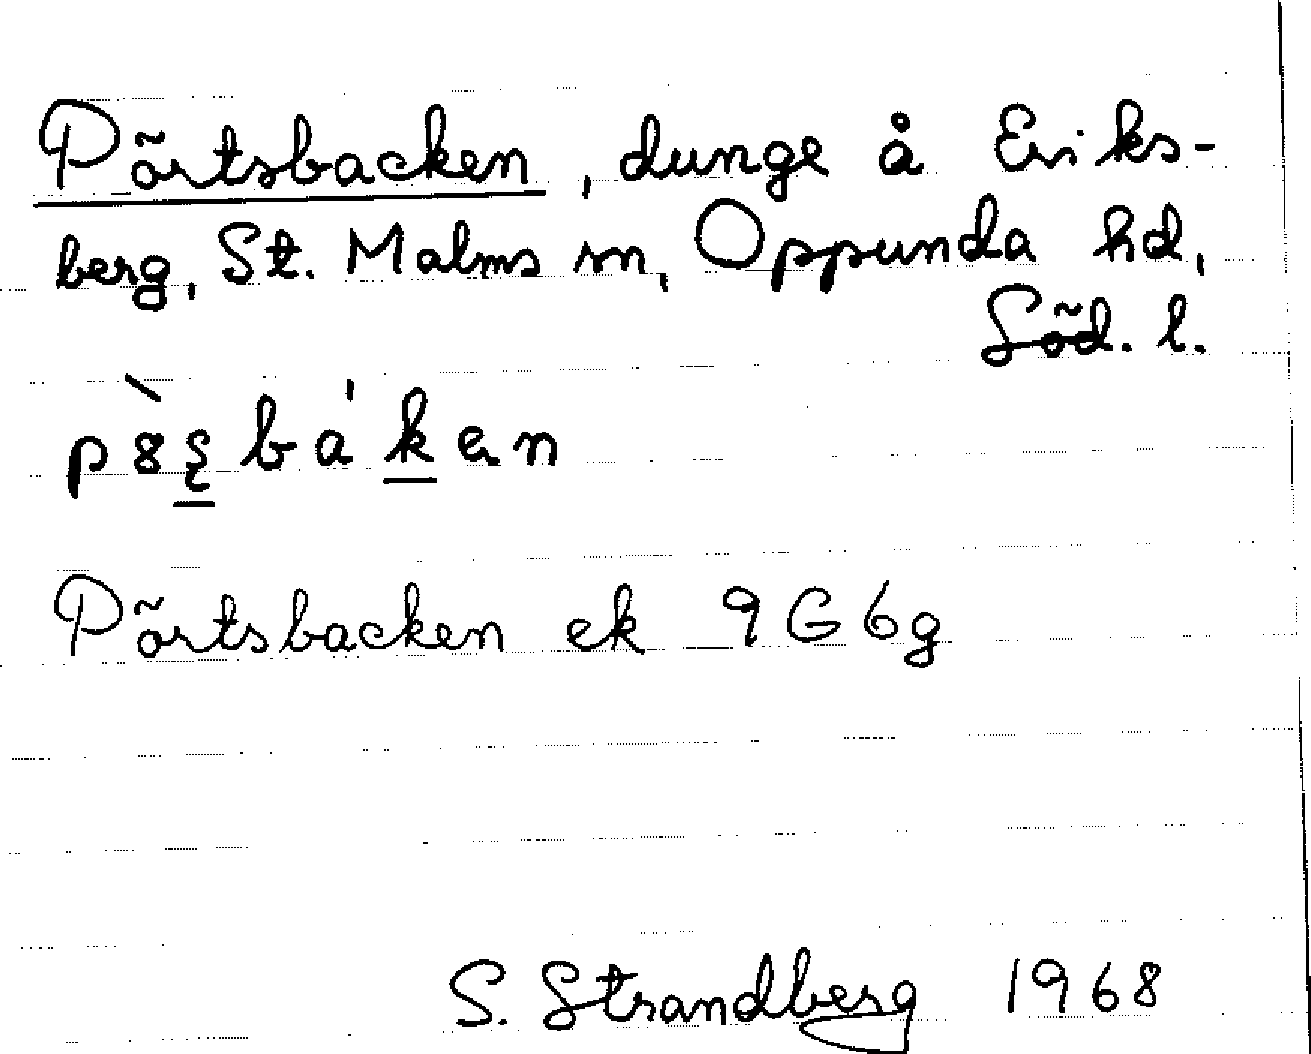 Pörtsbacken, dunge å Eriks-
berg, St. Malms sn, Oppunda hd,
Söd. l.
Pörtsbacken ek 9G6g
S. Strandberg 1968